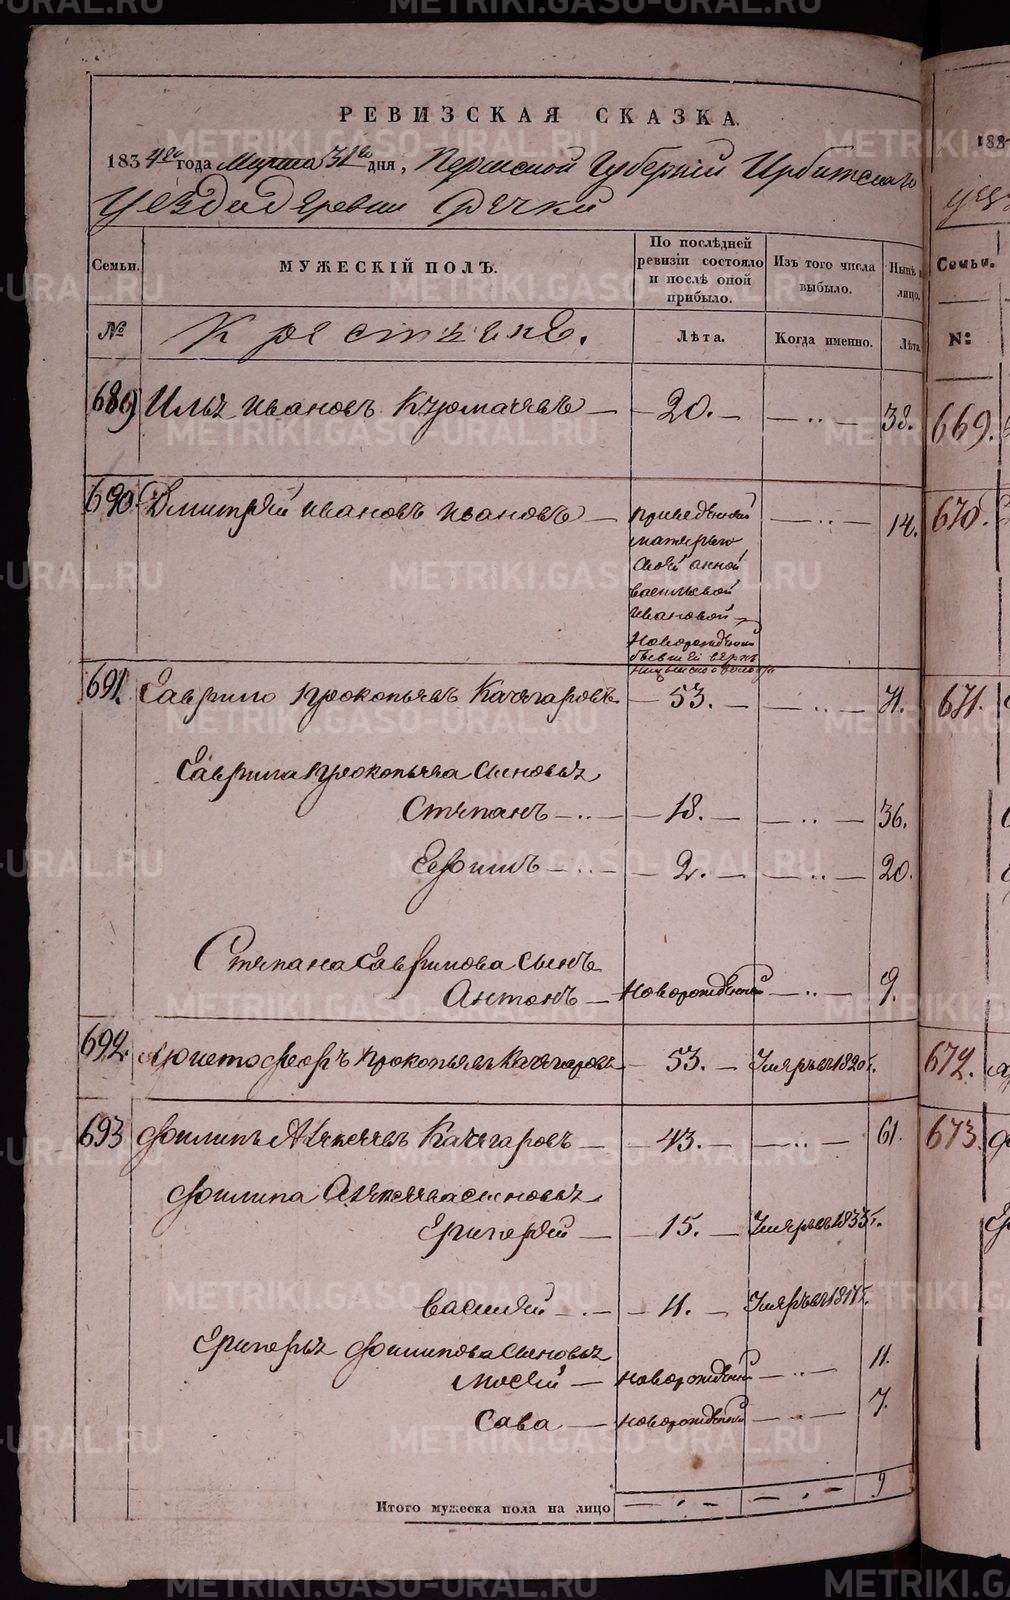 РЕВИЗСКАЯ СКАЗКА.
1834го года Марта 31го дня, Пермской Губернии Ирбитскаго
Уезда деревни Речки
Семьи.
МУЖЕСКІЙ ПОЛЪ.
По послѣдней ревизіи состояло и послѣ оной прибыло.
Изъ того числа выбыло.
Нынѣ лицо.
№
Крестьяне.
Лѣта.
Когда именно.
Лѣта
689 Илья Ивановъ — 20. — — .. — 38.
690. Дмитрей Ивановъ Ивановъ — — .. — 14.
Приведенной
матерью
своей Анной
Васильевой
Ивановой —
Новорожденной
бывшей
691. Гаврило Прокопьевъ Качегаровъ — 53. — — .. — 71.
Гаврила Прокопьева сыновья
Степанъ — .. — — 18. — — .. — 36.
Ефимъ — .. — — 2. — — .. — 20.
Степана Гаврилова сынъ
Антонъ — Новорожденной — .. — 9.
692. Христофоръ Прокопьевъ Качегаровъ — 53. — Умеръ въ 1820 г.
693 Филипъ Алексеевъ Качегаровъ — 43. — — .. — 61.
Филипа Алексеева сыновья
Григорей — 15. — Умеръ въ 1833 г.
Василей — .. — — 4. — Умеръ въ
Григорья Филипова сыновья
Мосей — новорожденной — .. — 11.
Сава — новорожденной — .. — 7.
Итого мужеска пола на лицо — . — — . — 9
183
Семьи.
№:
669.
670.
671.
672.
673.
METRIKI.GASO-URAL.RU